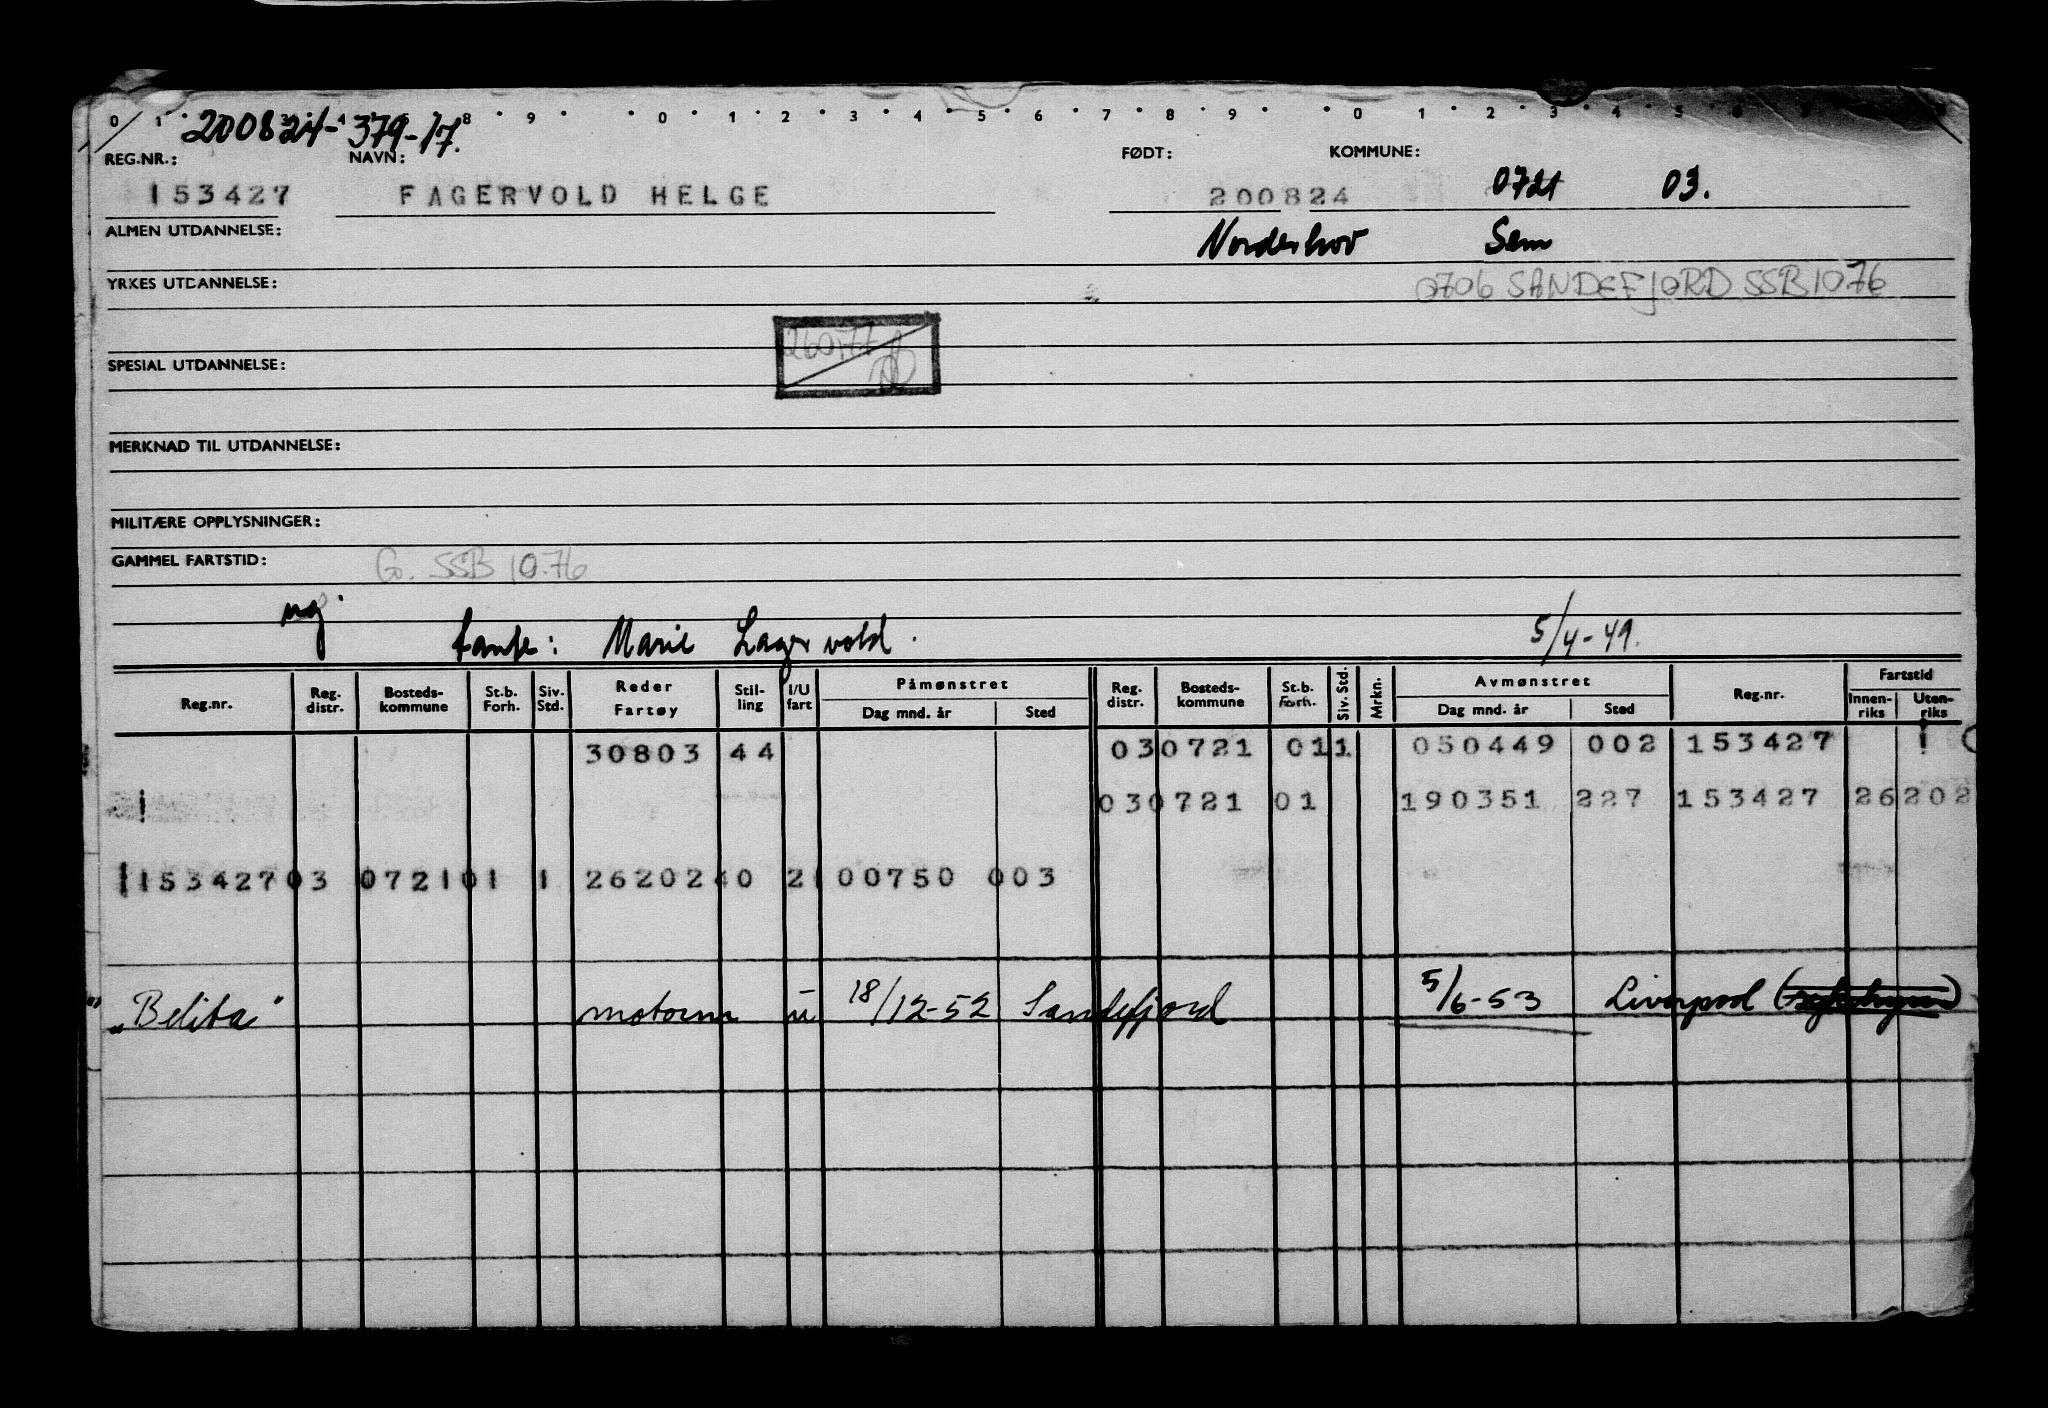 0 1 8 9 0 1 2 3 4 5 6 7 8 9 0 1 2 3 4 5 6
200824-379-17.
REG.NR.: NAVN: FØDT: KOMMUNE:
153427 FAGERVOLD HELGE 200824 0721 03.
ALMEN UTDANNELSE: Norderhov Sem
YRKES UTDANNELSE: 0706 SANDEFJORD SSB 10.76
260177
SPESIAL UTDANNELSE:
MERKNAD TIL UTDANNELSE:
MILITÆRE OPPLYSNINGER:
GAMMEL FARTSTID: G. SSB 10.76
tante: Marie Lagervold. 5/4-49.
Reg.nr. Reg. distr. Bosteds-kommune St.b. Forh. Siv. Std. Reder Fartøy Stil-ling I/U fart Påmønstret Dag mnd. år Sted Reg. distr. Bosteds-kommune St.b. Forh. Siv. Std. Mrkn. Avmønstret Dag mnd. år Sted Reg.nr. Fartstid Innen-riks Uten-riks
30803 44 030721 011 050449 002 153427
030721 01 190351 227 153427 26202
153427 03 0721 01 1 26202 40 2 100750 003
"Belita" motorm u 18/12-52 Sandefjord 5/6-53 Liverpool